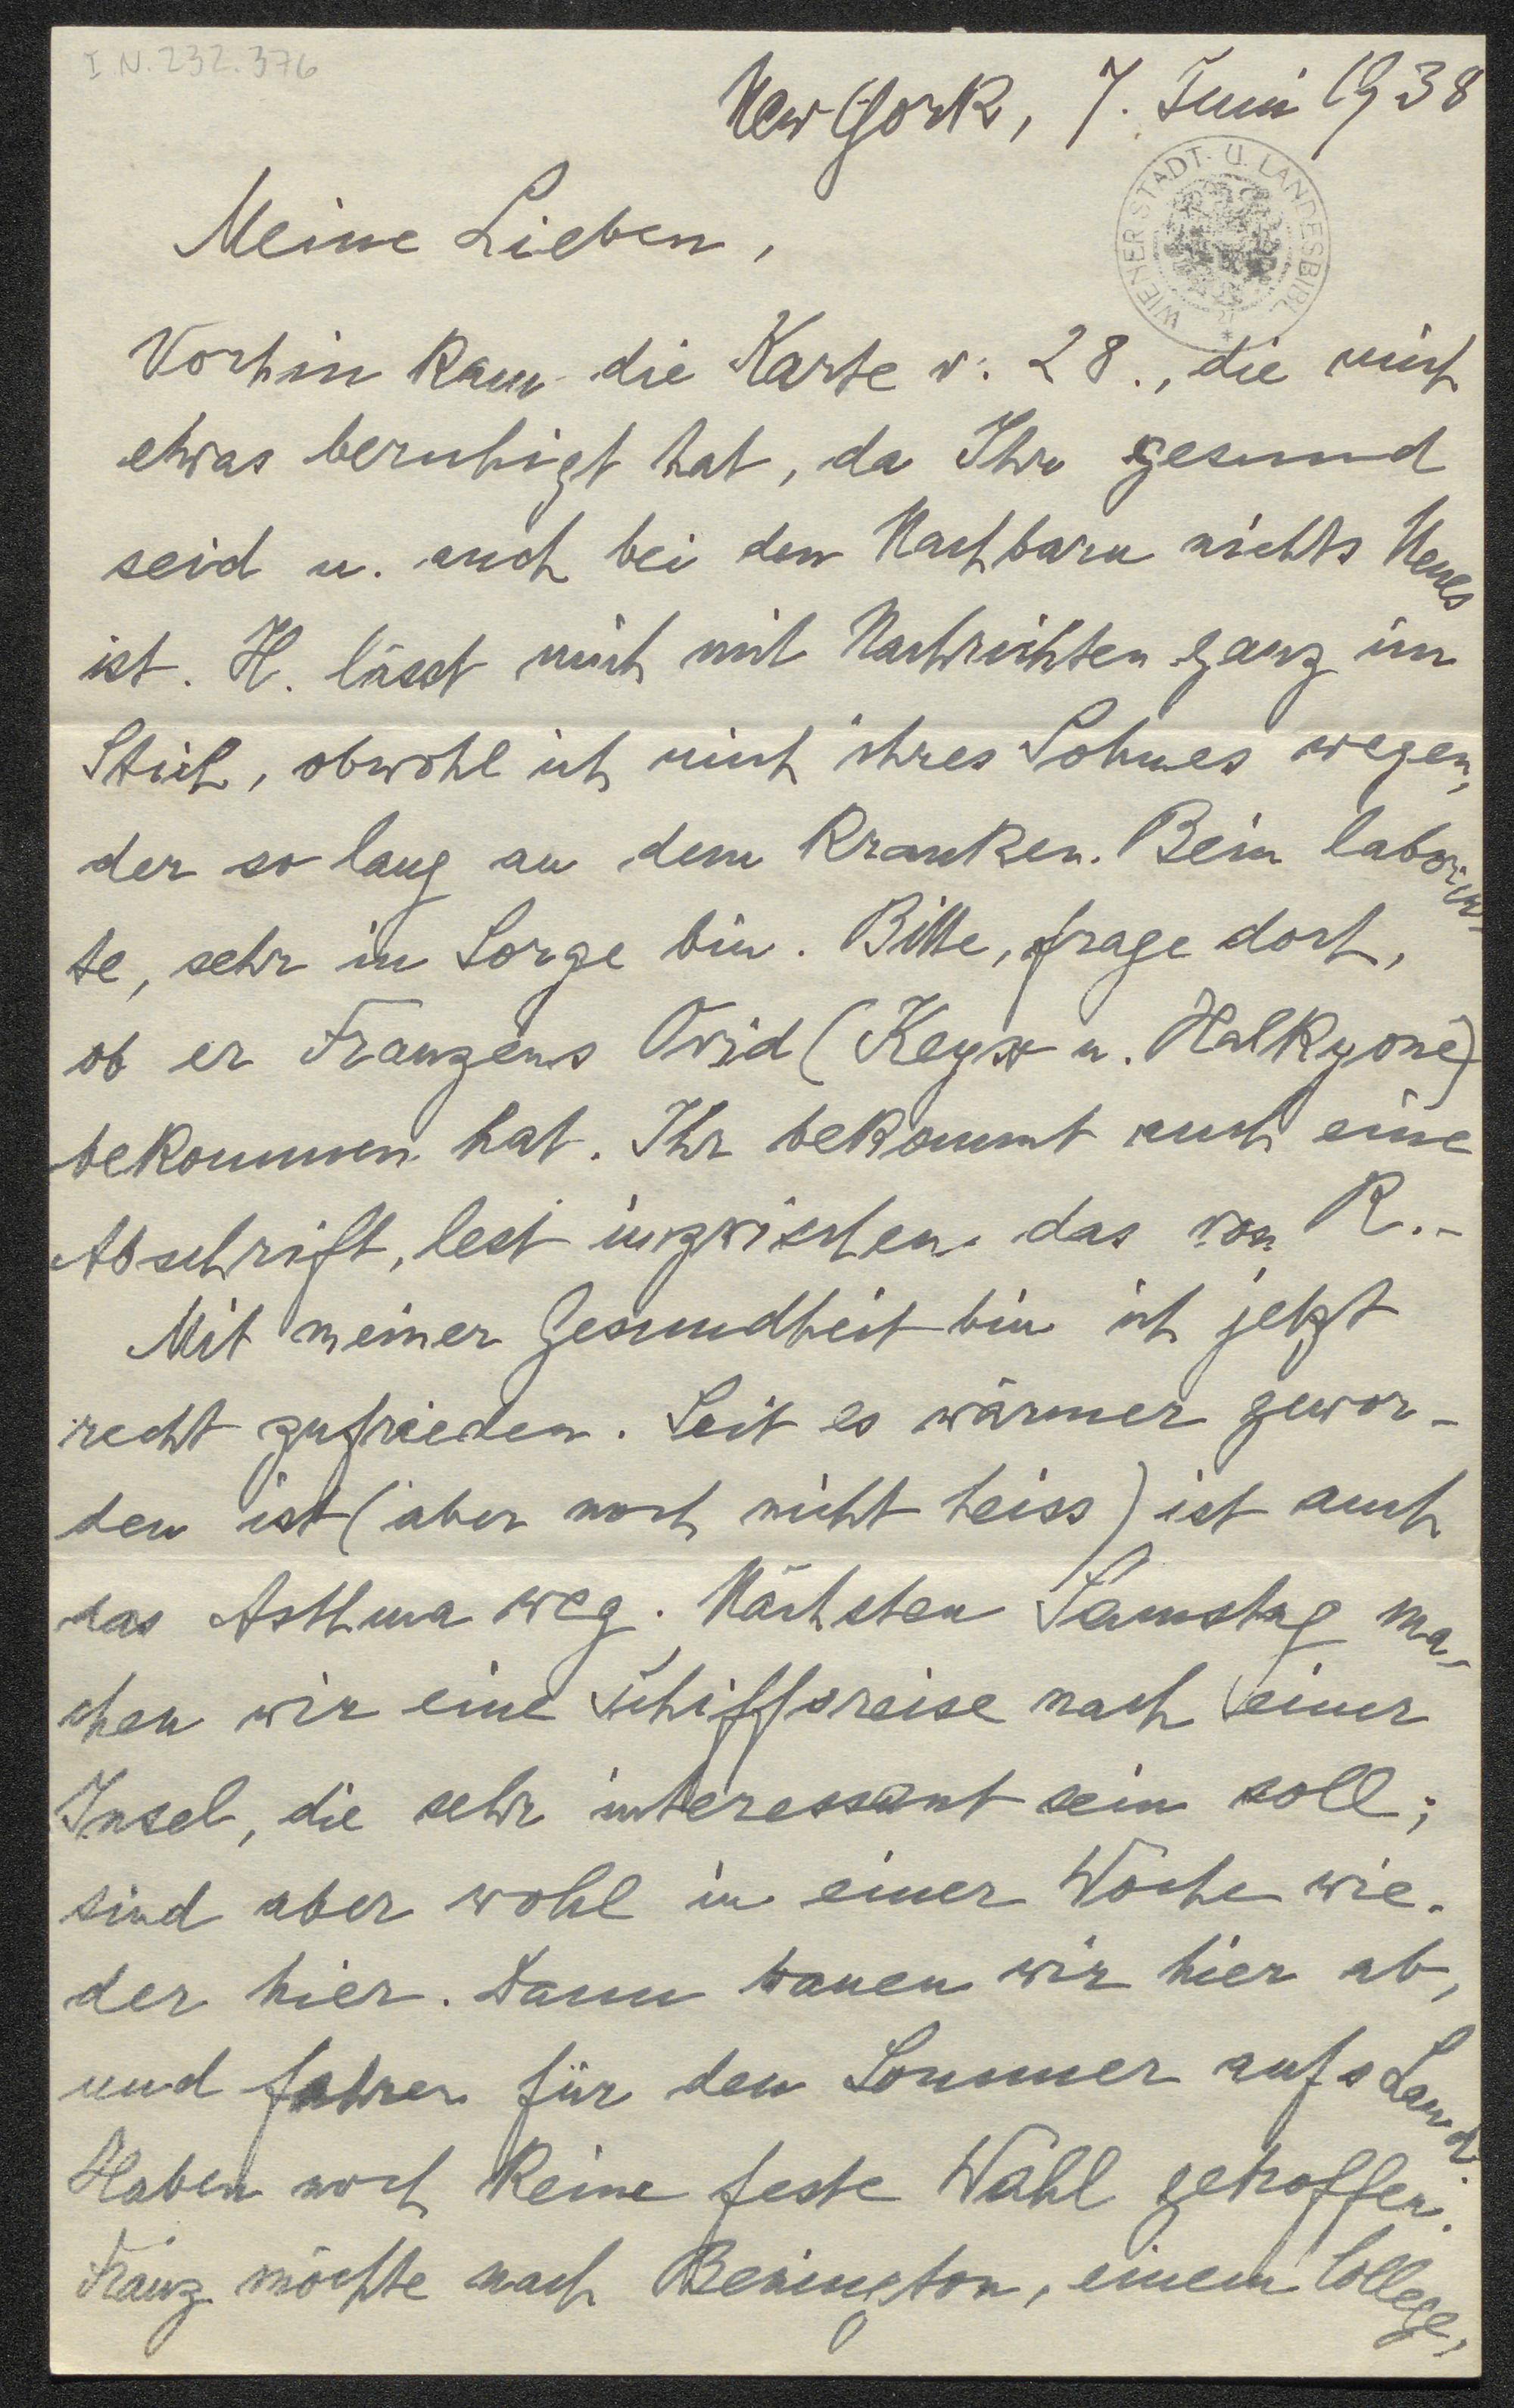 I N. 232.376
New York, 7. Juni 1938
WIENER STADT- U. LANDESBIBL.
Meine Lieben,
Vorhin kam die Karte v. 28., die mich
etwas beruhigt hat, da Ihr gesund
seid u. auch bei den Nachbarn nichts Neues
ist. H. lässt mich mit Nachrichten ganz im
Stich, obwohl ich mich ihres Sohnes wegen,
der so lang an dem kranken Bein laborier-
te, sehr in Sorge bin. Bitte, frage dort,
ob er Franzens Ovid (Keyx u. Halkyone)
bekommen hat. Ihr bekommt auch eine
Abschrift, lest inzwischen das von R. -
Mit meiner Gesundheit bin ich jetzt
recht zufrieden. Seit es wärmer gewor-
den ist (aber noch nicht heiss) ist auch
das Asthma weg. Nächsten Samstag ma-
chen wir eine Schiffsreise nach einer
Insel, die sehr interessant sein soll;
sind aber wohl in einer Woche wie-
der hier. Dann bauen wir hier ab,
und fahren für den Sommer aufs Land.
Haben noch keine feste Wahl getroffen.
Franz möchte nach Benington, einem College,